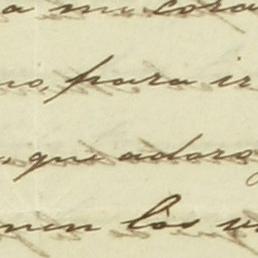 a mi cora
no, para ir
que adoro
nen los vi